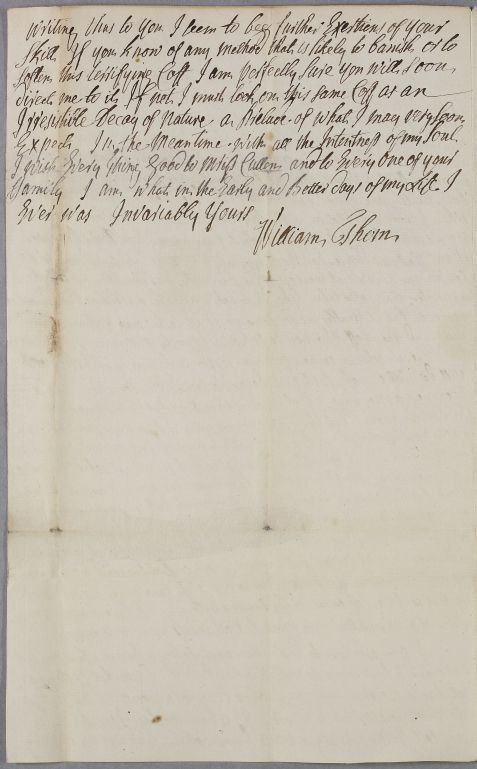 Writing thus to you I seem to beg further Exertions of your
Skill If you know of any method that is likely to banish or to
soften this terrifying Coff I am perfectly sure you will soon
direct me to it, If not I must look on this same Coff as an
Irresistible Decay of nature a prelude of what I may very soon
Expect In the Meantime with all the Intentness of my Soul
I wish Every thing Good to Miss Cullen and to Every one of your
Family I am what in the Early and better days of my Life I
Ever was Invariably Yours
William Thom